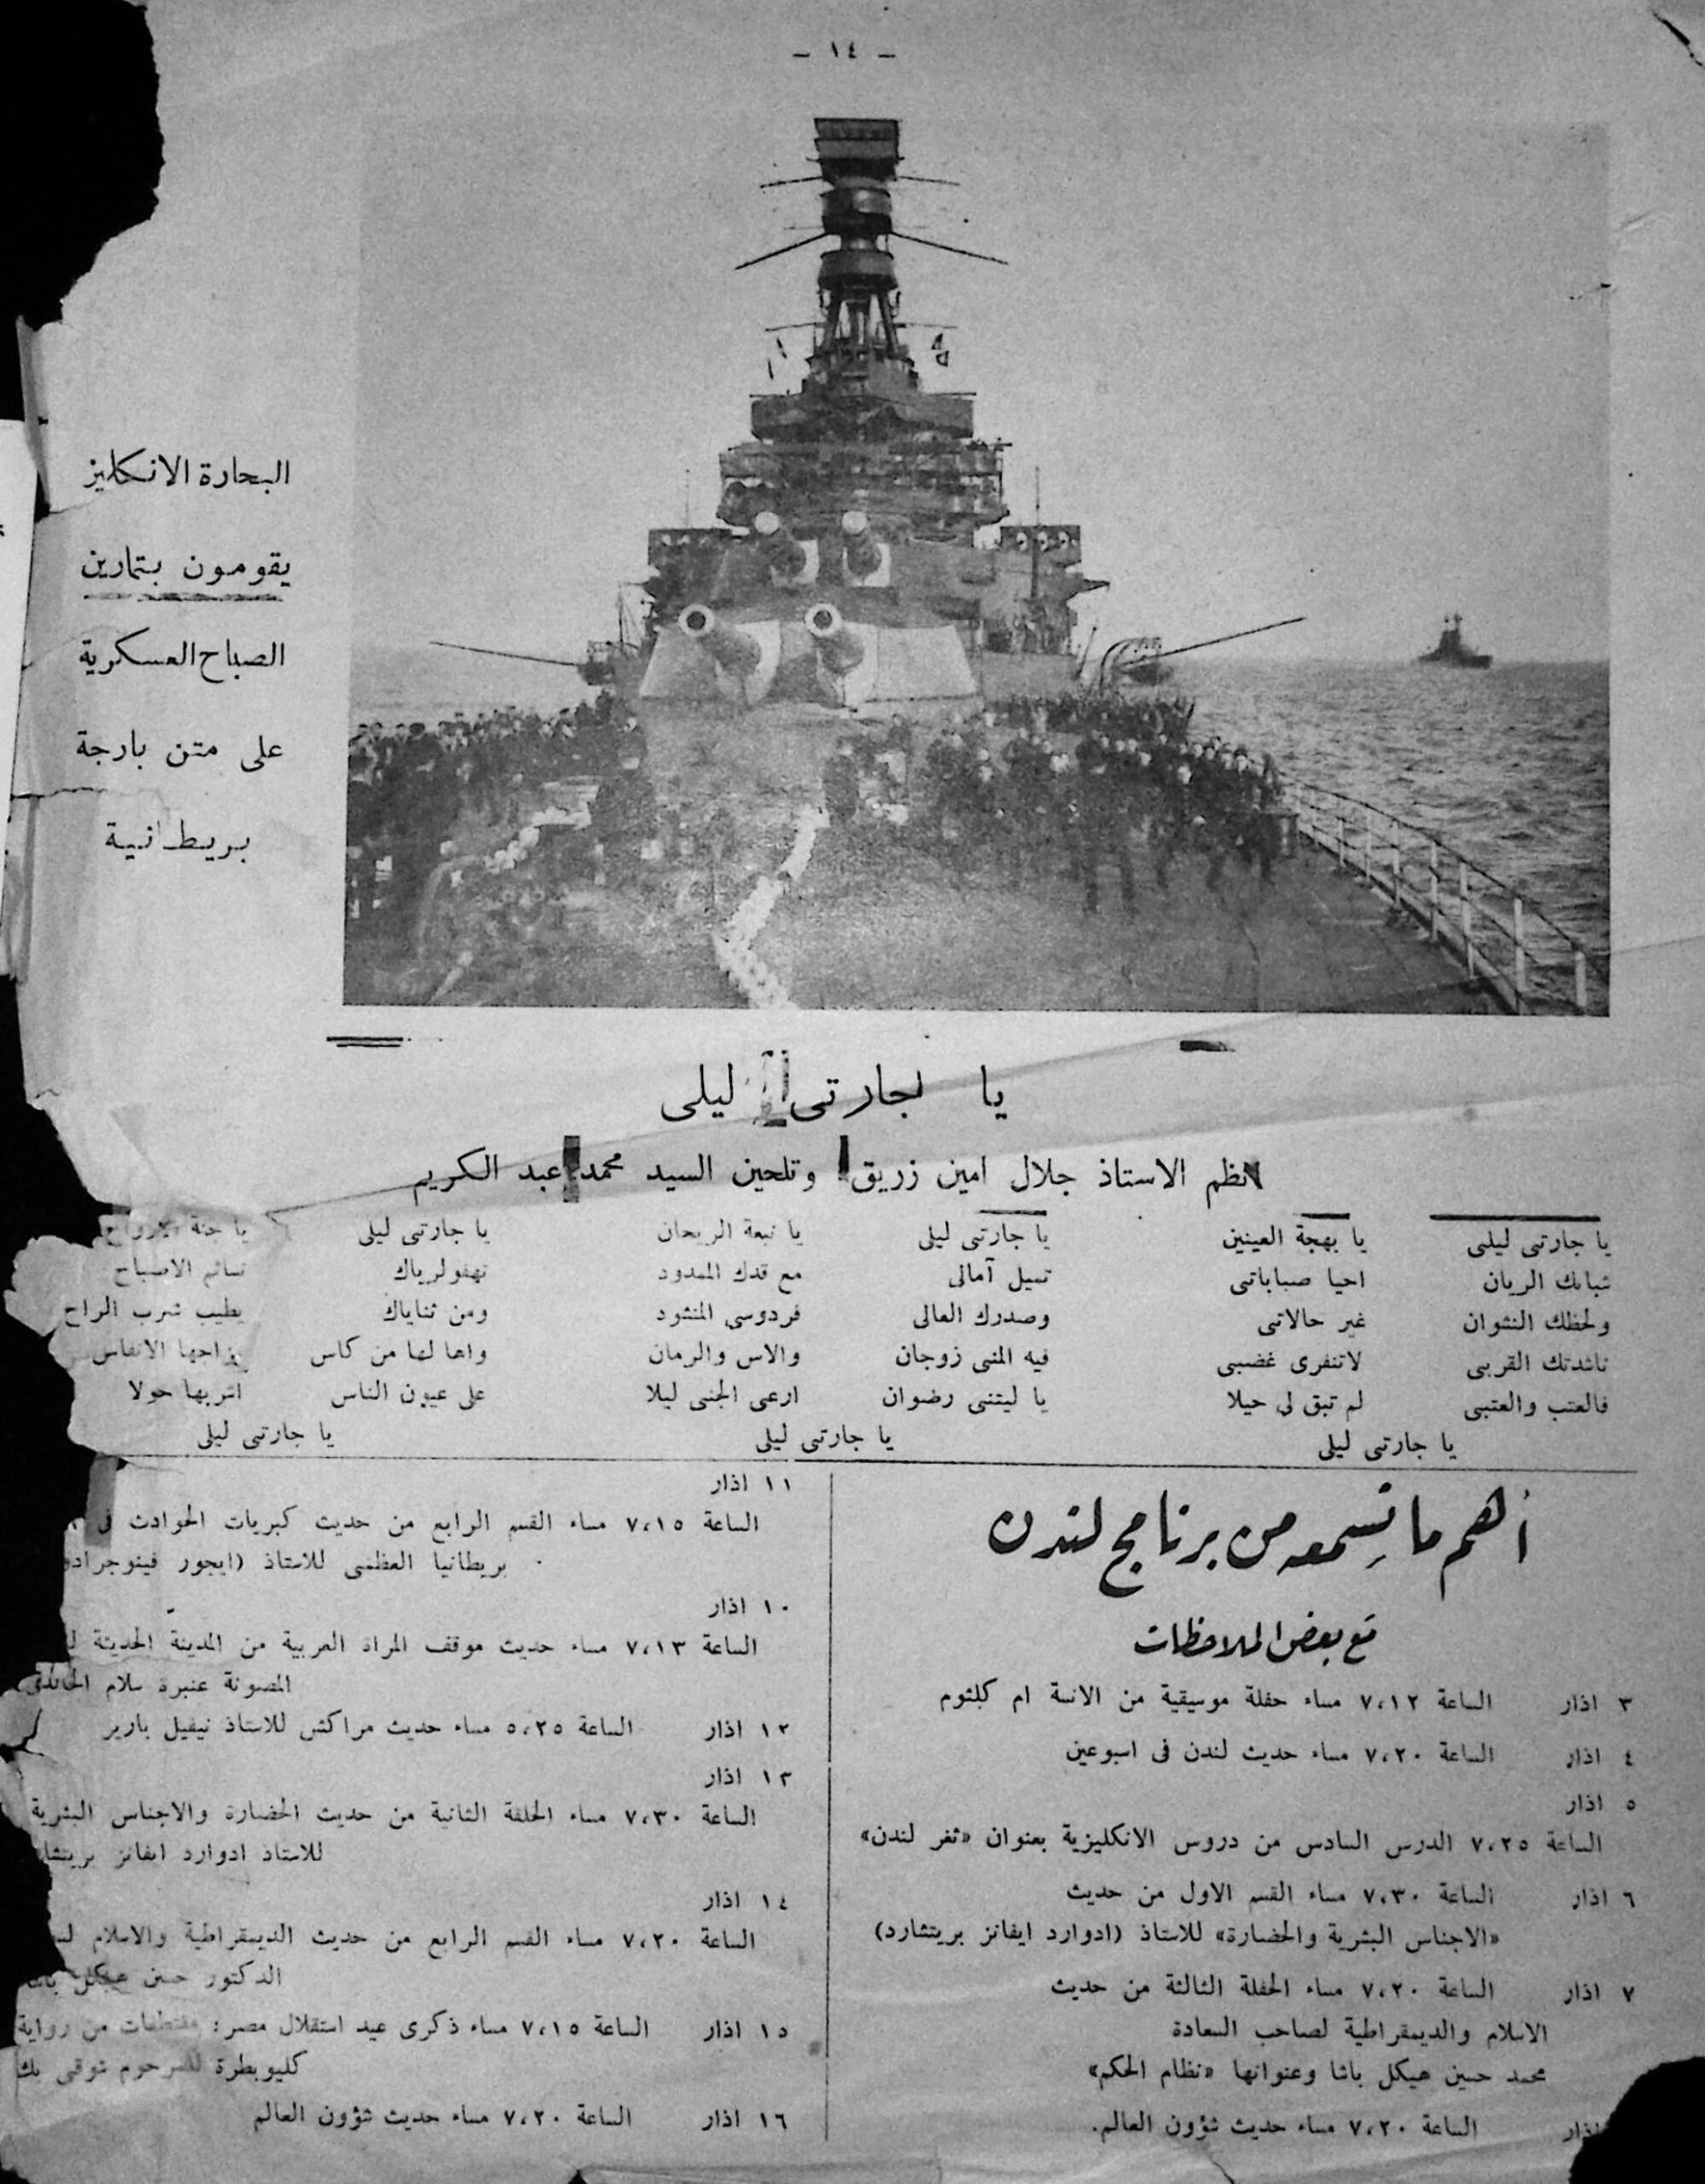 - ١٤ -
البحارة الانكليز
يقومون بتمارين
الصباح العسكرية
على متن بارجة
بريطانية
يا جارتى ليلى
نظم الاستاذ جلال امين زريق وتلحين السيد محمد عبد الكريم
يا جارتى ليلى يا بهجة العينين يا جارتى ليلى يا نبعة الريحان يا جارتى ليلى يا جنة
شبابك الريان احيا صباباتى تميل آمالى مع قدك الممدود تهفو لرياك نسائم الاصباح
ولحظك النشوان غير حالاتى وصدرك العالى فردوسى المنشود ومن ثناياك يطيب شرب الراح
ناشدتك القربى لاتنفرى غضبى فيه المنى زوجان والاس والرمان واها لها من كاس مزاجها الانفاس
فالعتب والعتبى لم تبق لى حيلا يا ليتنى رضوان ارعى الجنى ليلا على عيون الناس اشربها حولا
يا جارتى ليلى يا جارتى ليلى يا جارتى ليلى
أهم ما تسمعه من برنامج لندن
مع بعض الملاحظات
٣ اذار الساعة ٧،١٢ مساء حفلة موسيقية من الانسة ام كلثوم
٤ اذار الساعة ٧،٢٠ مساء حديث لندن فى اسبوعين
٥ اذار
الساعة ٧،٢٥ الدرس السادس من دروس الانكليزية بعنوان «ثغر لندن»
٦ اذار الساعة ٧،٣٠ مساء القسم الاول من حديث
«الاجناس البشرية والحضارة» للاستاذ (ادوارد ايفانز بريتشارد)
٧ اذار الساعة ٧،٢٠ مساء الحفلة الثالثة من حديث
الاسلام والديمقراطية لصاحب السعادة
محمد حسين هيكل باشا وعنوانها «نظام الحكم»
اذار الساعة ٧،٢٠ مساء حديث شؤون العالم.
١١ اذار
الساعة ٧،١٥ مساء القسم الرابع من حديث كبريات الحوادث فى
بريطانيا العظمى للاستاذ (ايجور
١٠ اذار
الساعة ٧،١٣ مساء حديث موقف المراة العربية من المدينة الحديثة
المصونة عنبرة سلام الخالدى
١٢ اذار الساعة ٥،٢٥ مساء حديث مراكش للاستاذ نيفيل بارير
١٣ اذار
الساعة ٧،٣٠ مساء الحلقة الثانية من حديث الحضارة والاجناس البشرية
للاستاذ ادوارد ايفانز
١٤ اذار
الساعة ٧،٢٠ مساء القسم الرابع من حديث الديمقراطية والاسلام
الدكتور حسين هيكل باشا
١٥ اذار الساعة ٧،١٥ مساء ذكرى عيد استقلال مصر: مقتطفات من رواية
كليوبطرة للمرحوم شوقى بك
١٦ اذار الساعة ٧،٢٠ مساء حديث شؤون العالم